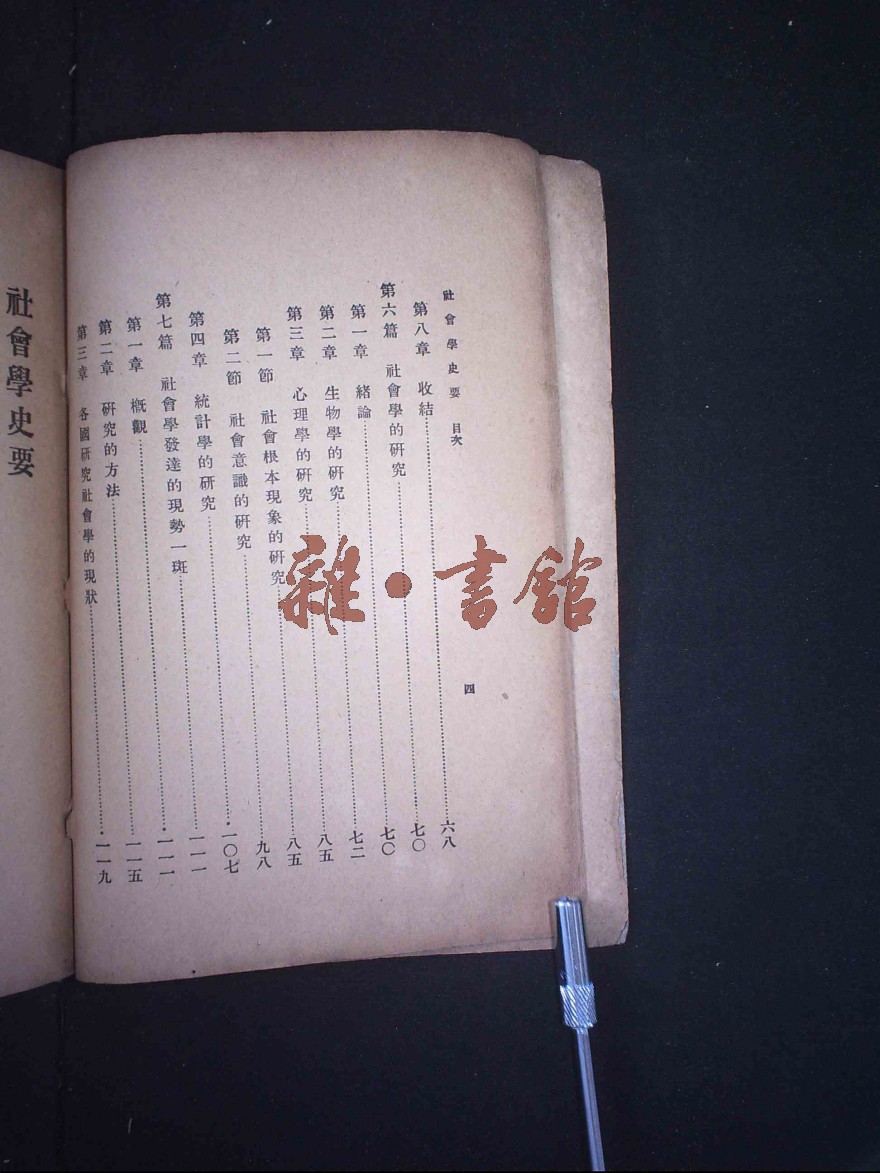 社會學史要 目次 四
第八章 收結……六八
第六篇 社會學的研究……七〇
第一章 緒論……七〇
第二章 生物學的研究……七二
第三章 心理學的研究……八五
第一節 社會根本現象的研究……八五
第二節 社會意識的研究……九八
第四章 統計學的研究……一〇七
第七篇 社會學發達的現勢一斑……一一一
第一章 概觀……一一一
第二章 研究的方法……一一五
第三章 各國研究社會學的現狀……一一九
社會學史要
雜·書館